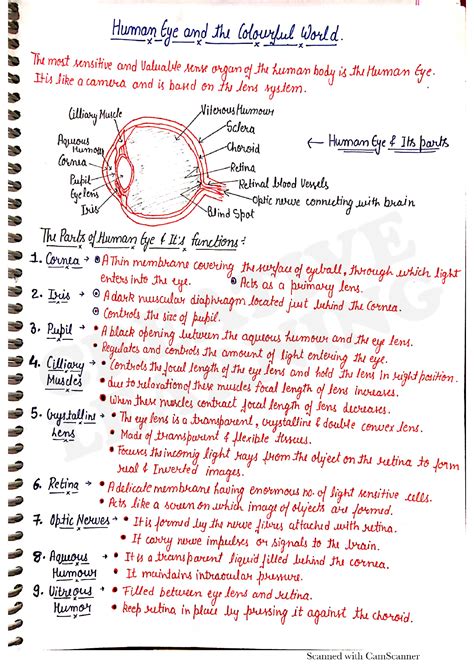 Human Eye and the Colourful World.
The most sensitive and Valuable sense organ of the human body is the Human Eye.
It is like a camera and is based on the lens system.
Cilliary Muscle
Viterous Humour
Sclera
Aqueous
Humour
Choroid
← Human Eye & Its parts
Cornea
Retina
Pupil
Retinal blood Vessels
Eye lens
Optic nerve connecting with brain
Iris
Blind Spot
The Parts of Human Eye & It's functions:
1. Cornea → A Thin membrane covering the surface of eyeball, through which light
enters into the eye. Acts as a primary lens.
2. Iris → A dark muscular diaphragm located just behind the Cornea.
Controls the size of pupil.
3. Pupil → • A black opening between the aqueous humour and the eye lens.
• Regulates and controls the amount of light entering the eye.
4. Cilliary → • Controls the focal length of the eye lens and hold the lens in right position.
Muscles • due to relaxation of these muscles focal length of lens increases.
• When these muscles contract focal length of lens decreases.
5. Crystalline → • The eye lens is a transparent, crystalline & double convex lens.
Lens • Made of transparent & flexible tissues.
• Focuses the incomig light rays from the object on the retina to form
real & Inverted images.
6. Retina → • A delicate membrane having enormous no. of light sensitive cells.
• Acts like a screen on which image of objects are formed.
7. Optic Nerves → • It is formed by the nerve fibres attached with retina.
• It carry nerve impulses or signals to the brain.
8. Aqueous → • It is a transparent liquid filled behind the cornea.
Humour • It maintains intraocular pressure.
9. Vitreous → • Filled between eye lens and retina.
Humor • keep retina in place by pressing it against the choroid.
Scanned with CamScanner